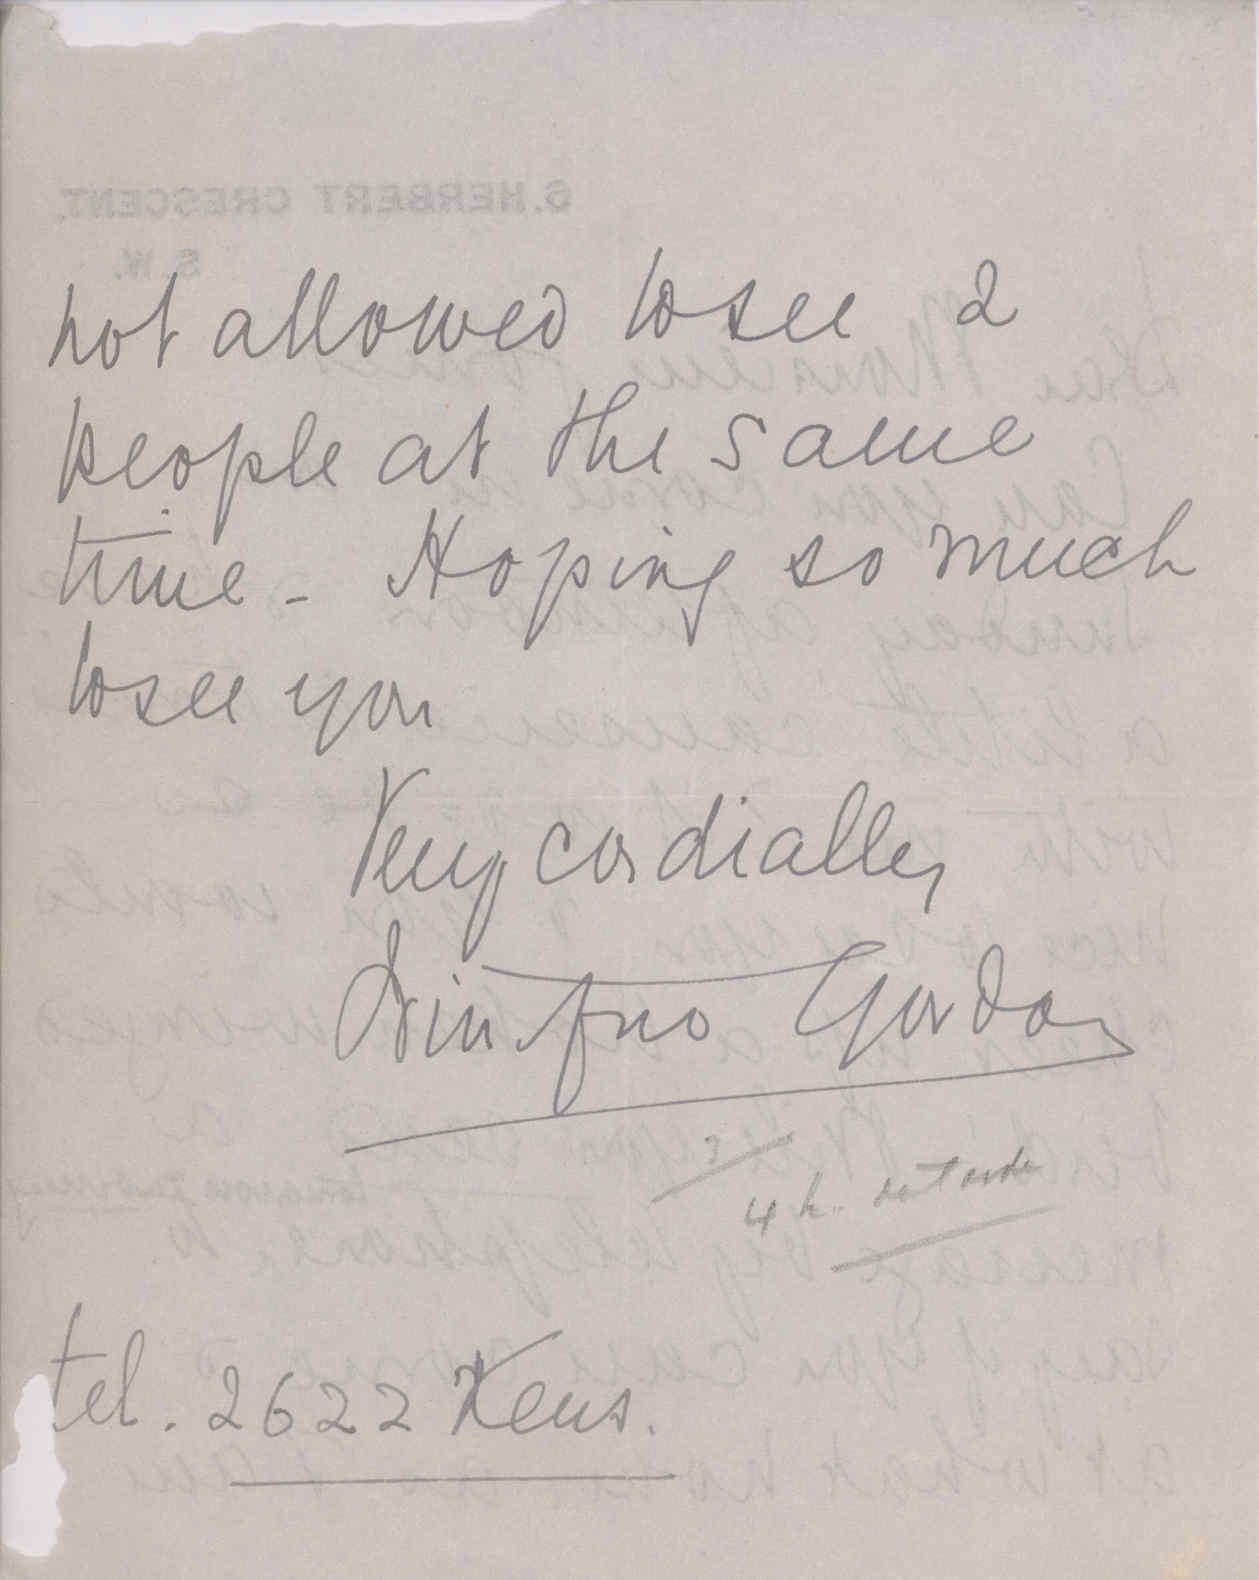 not allowed to see 2
people at the same
time - Hoping so much
to see you
Very cordially
Gordon
4 h.
tel. 2622 Kens.